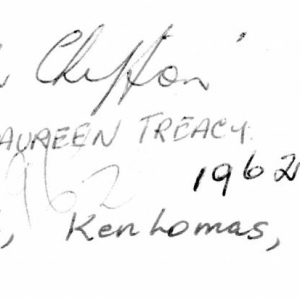 Clifton"
AUREEN TREACY
1962
1962
, Ken Lomas,